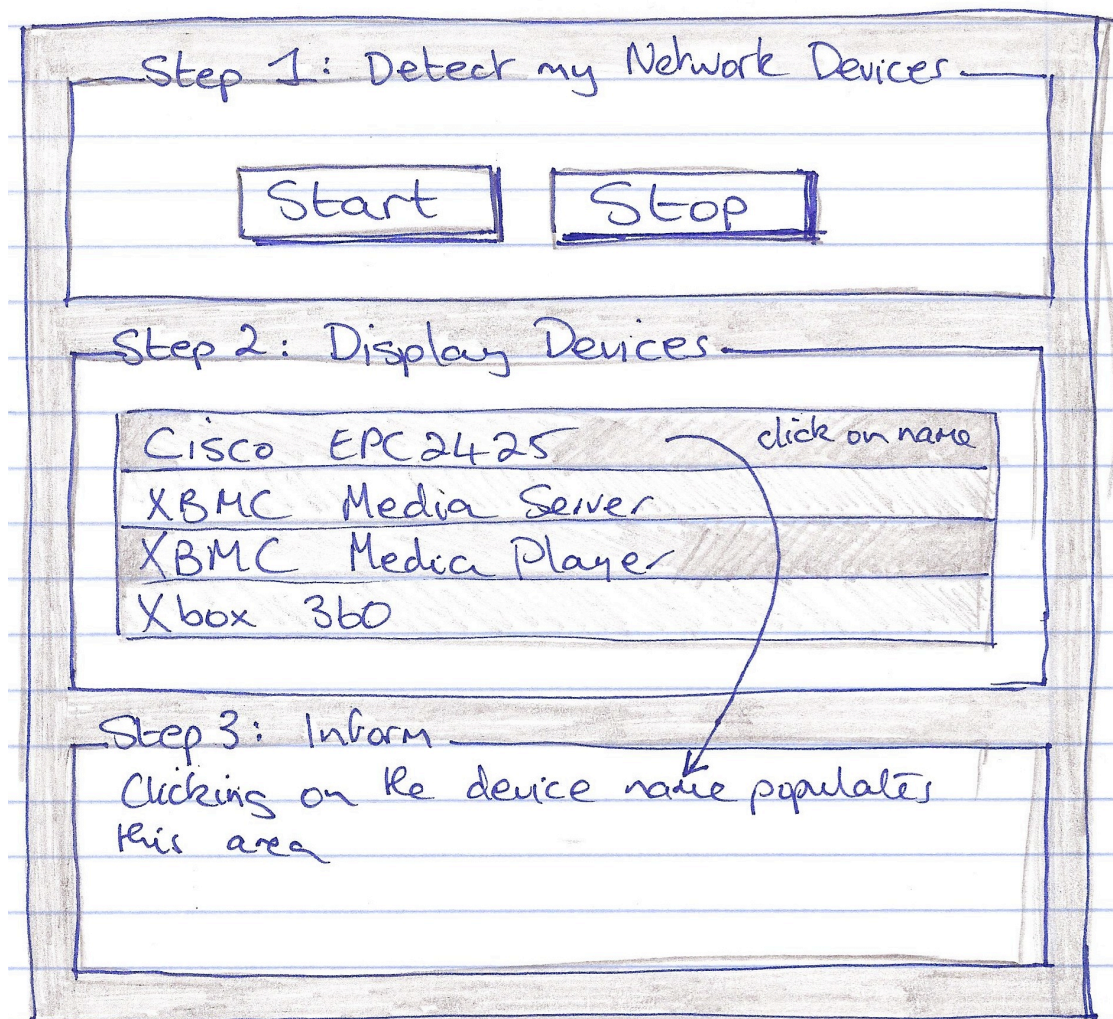 Step 1: Detect my Network Devices
Start Stop
Step 2: Display Devices
Cisco EPC2425 click on name
XBMC Media Server
XBMC Media Player
Xbox 360
Step 3: Inform
Clicking on the device name populates
this area